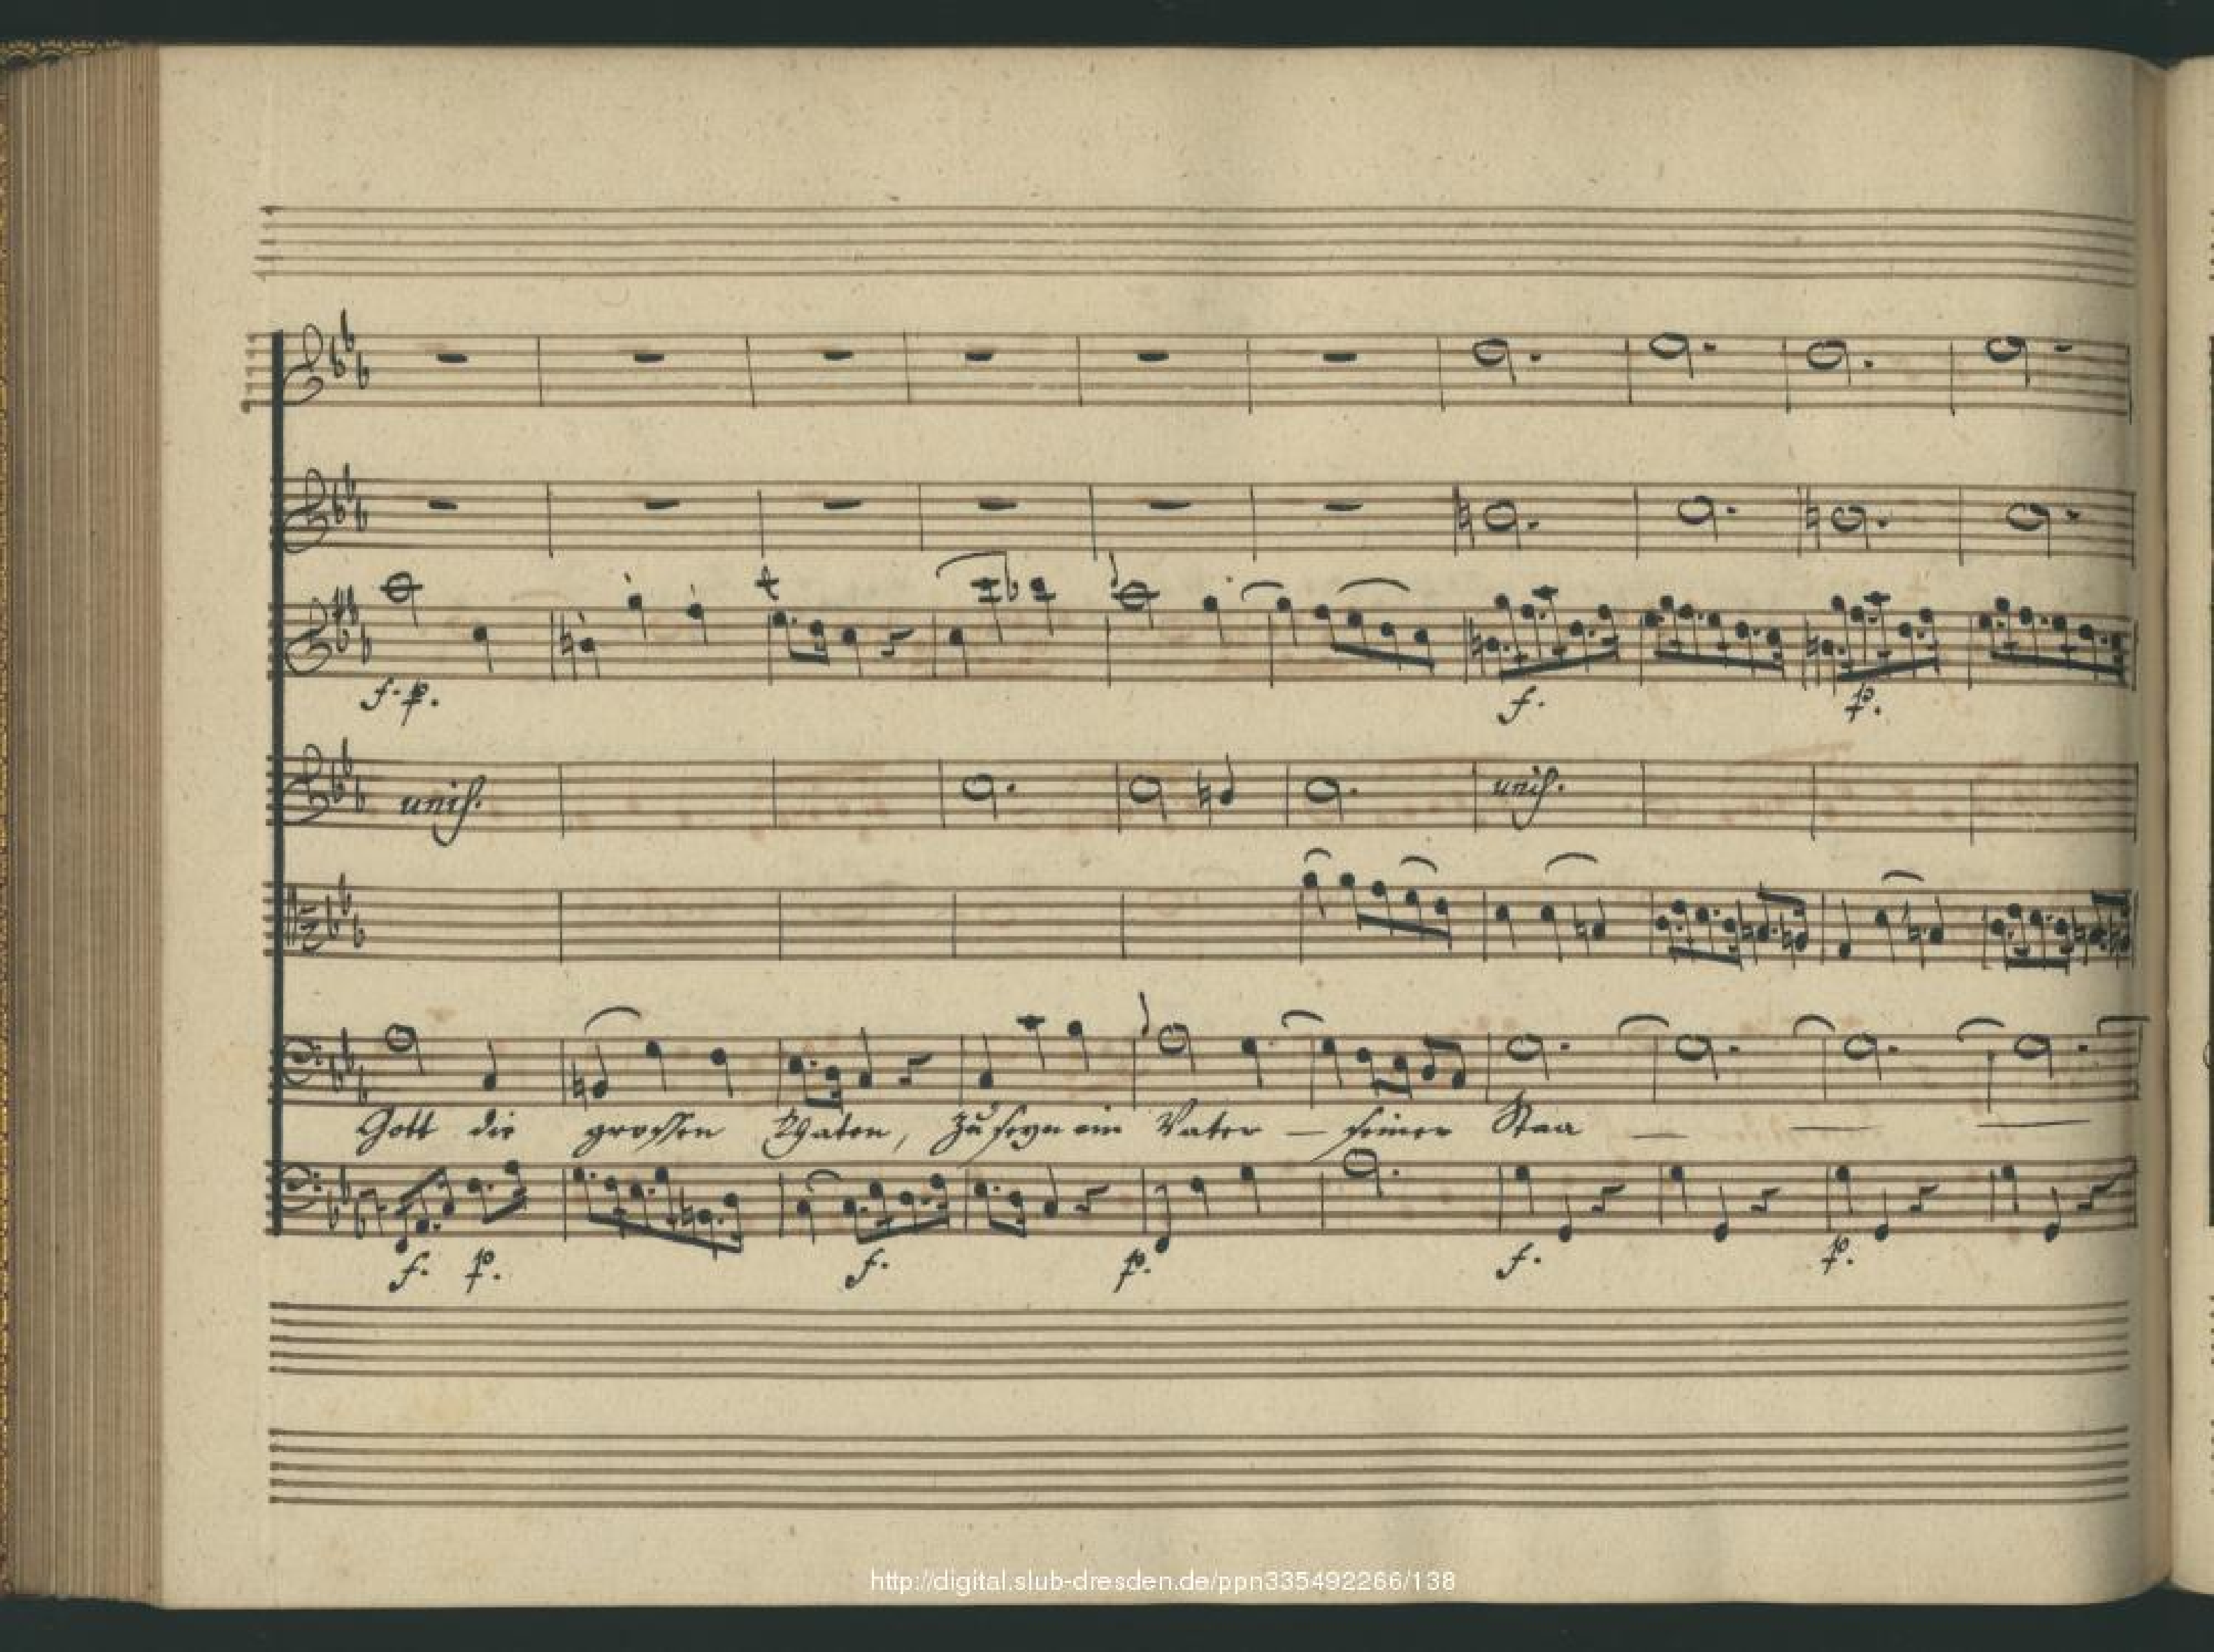 f. p. f. p.
unis. unis.
Gott die großen Thaten, zu seyn ein Vater — seiner Staa — — —
f. p. f. p. f. p.
http://digital.slub-dresden.de/ppn335492266/138